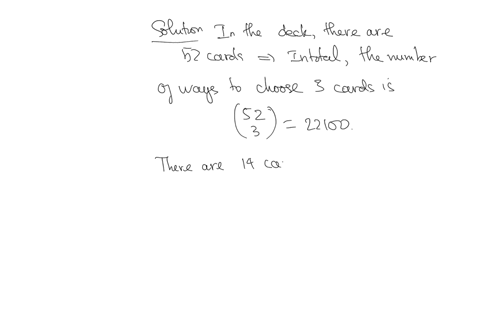 Solution In the deck, there are
52 cards => In total, the number
of ways to choose 3 cards is
(52
3) = 22100.
There are 14 ca